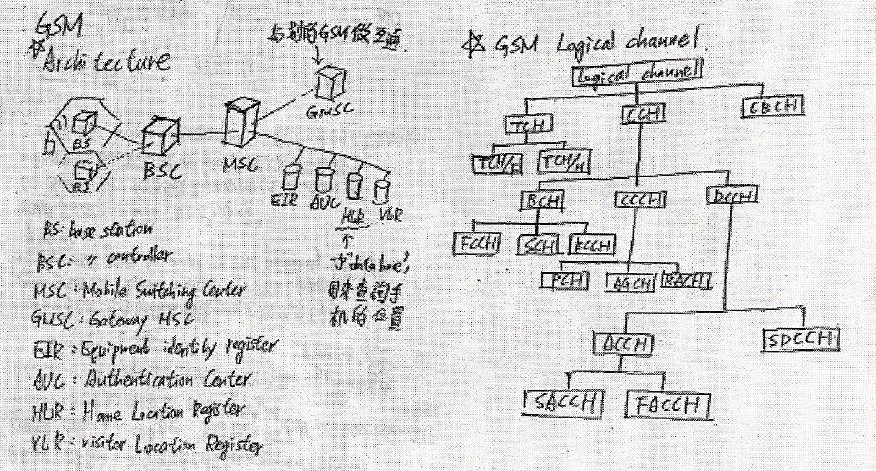 GSM
☆ Architecture
与别的GSM做互通
GMSC
BS
BS
BSC
MSC
EIR
AUC
HLR
VLR
BS: base station
BSC: " controller
MSC: Mobile Switching Center
GMSC: Gateway MSC
EIR: Equipment identity register
AUC: Authentication Center
HLR: Home Location Register
VLR: visitor Location Register
"data base",
用来查询手
机的位置
☆ GSM Logical channel.
Logical channel
TCH
CCH
CBCH
TCH/F
TCH/H
BCH
CCCH
DCCH
FCCH
SCH
BCCH
PCH
AGCH
RACH
ACCH
SDCCH
SACCH
FACCH